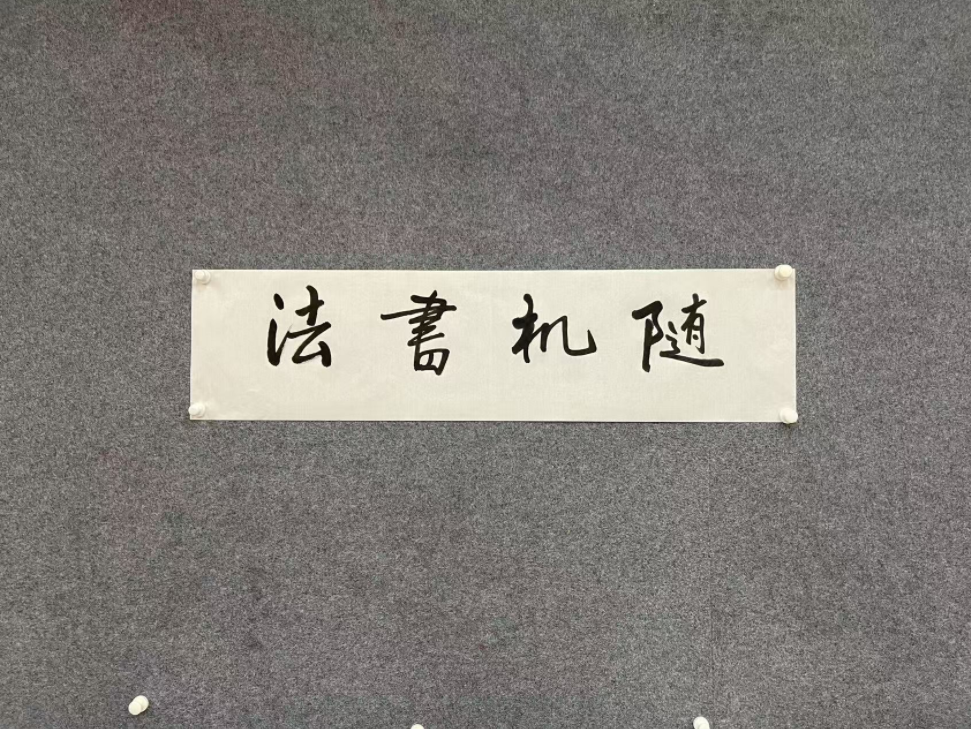 随机書法